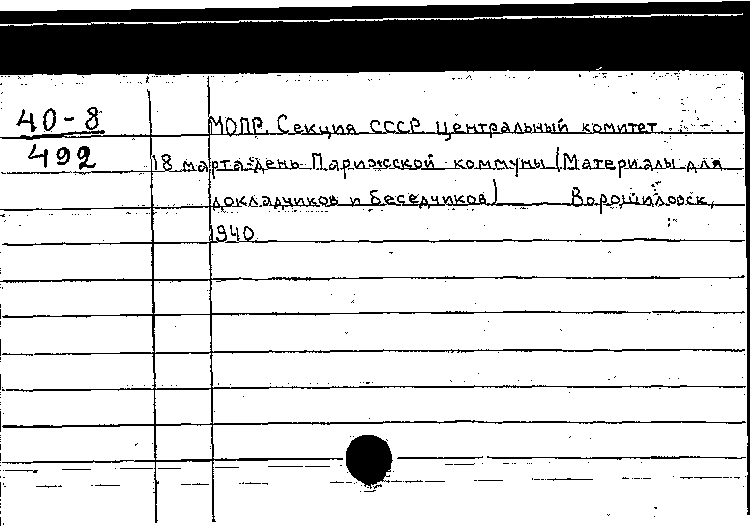 40-8 МОПР. Секция СССР. Центральный комитет
492 18 марта-день Парижской коммуны (Материалы для
докладчиков и беседчиков) Ворошиловск,
1940